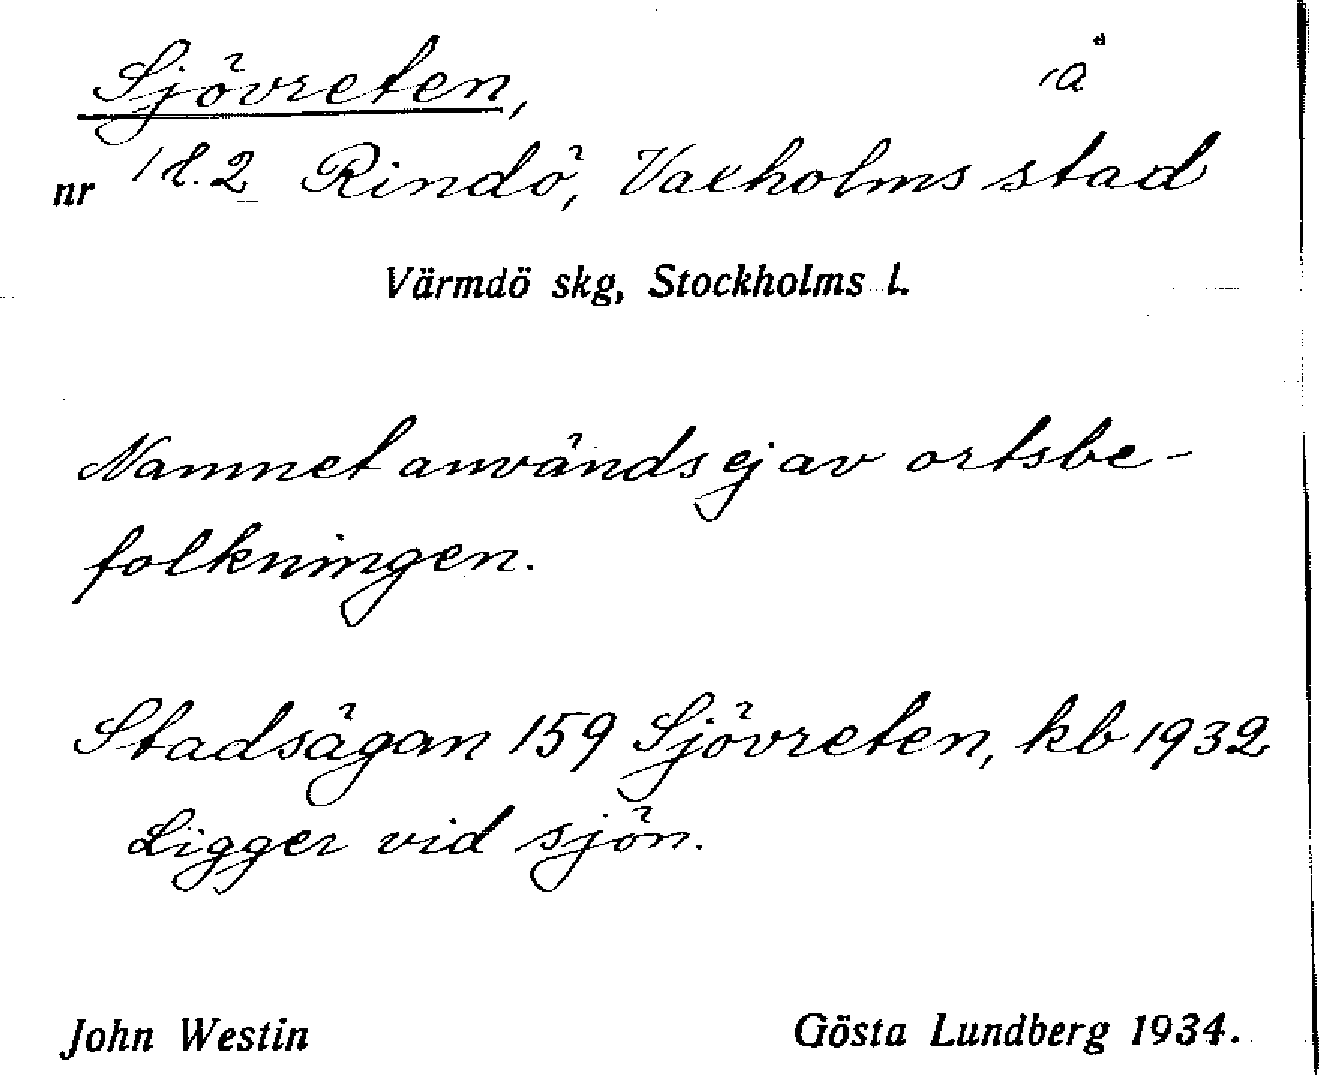 Sjövreten, ä
nr 1 l. 2 Rindö, Vaxholms stad
Värmdö skg, Stockholms l.
Namnet används ej av ortsbe-
folkningen.
Stadsägan 159 Sjövreten, kb 1932
Ligger vid sjön.
John Westin Gösta Lundberg 1934.